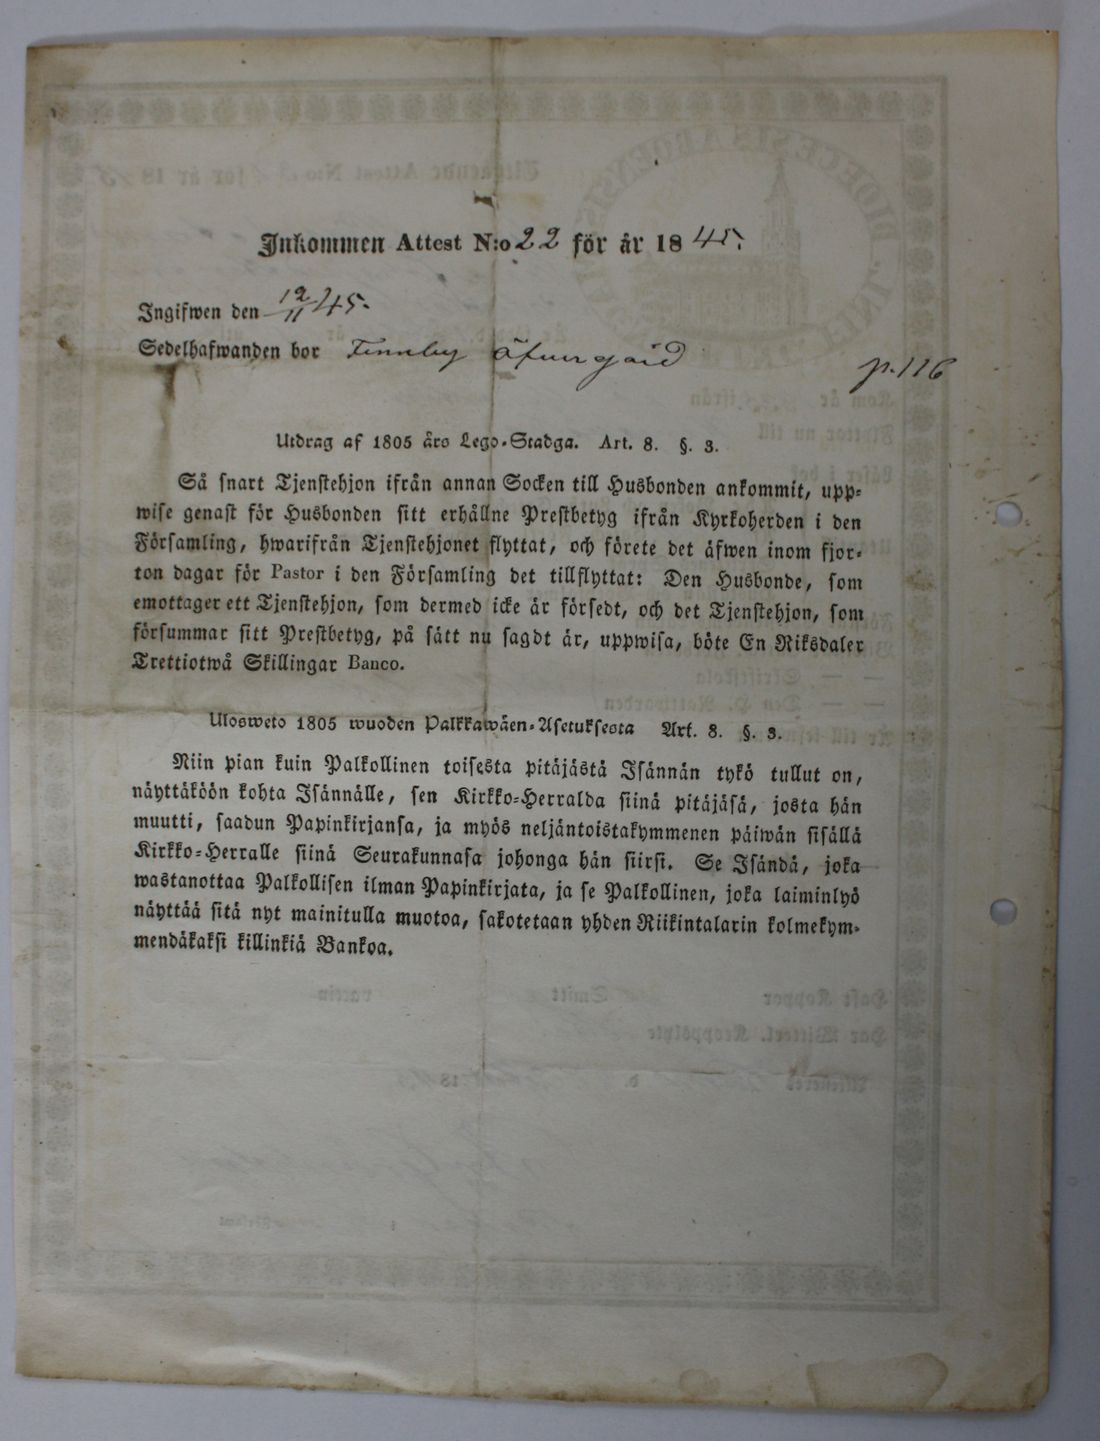 Inkommen Attest N:o 22 för år 1845.
Ingifwen den 12/11 45.
Sedelhafwanden bor Finnby Öfvergård
p. 116
Utdrag af 1805 års Lego-Stadga. Art. 8. §. 3.
Så snart Tjenstehjon ifrån annan Socken till Husbonden ankommit, upp-
wise genast för Husbonden sitt erhållne Prestbetyg ifrån Kyrkoherden i den
Församling, hwarifrån Tjenstehjonet flyttat, och förete det äfwen inom fjor-
ton dagar för Pastor i den Församling det tillflyttat: Den Husbonde, som
emottager ett Tjenstehjon, som dermed icke är försedt, och det Tjenstehjon, som
försummar sitt Prestbetyg, på sätt nu sagdt är, uppwisa, böte En Riksdaler
Trettiotwå Skillingar Banco.
Ulosweto 1805 wuoden Palkkawäen-Asetuksesta Art. 8. §. 3.
Niin pian kuin Palkollinen toisesta pitäjästä Isännän tykö tullut on,
näyttäköön kohta Isännälle, sen Kirkko-Herralda siinä pitäjäsä, josta hän
muutti, saadun Papinkirjansa, ja myös neljäntoistakymmenen päiwän sisällä
Kirkko-Herralle siinä Seurakunnasa johonga hän siirsi. Se Isändä, joka
wastanottaa Palkollisen ilman Papinkirjata, ja se Palkollinen, joka laiminlyö
näyttää sitä nyt mainitulla muotoa, sakotetaan yhden Riikintalarin kolmekym-
mendäkaksi killinkiä Bankoa.